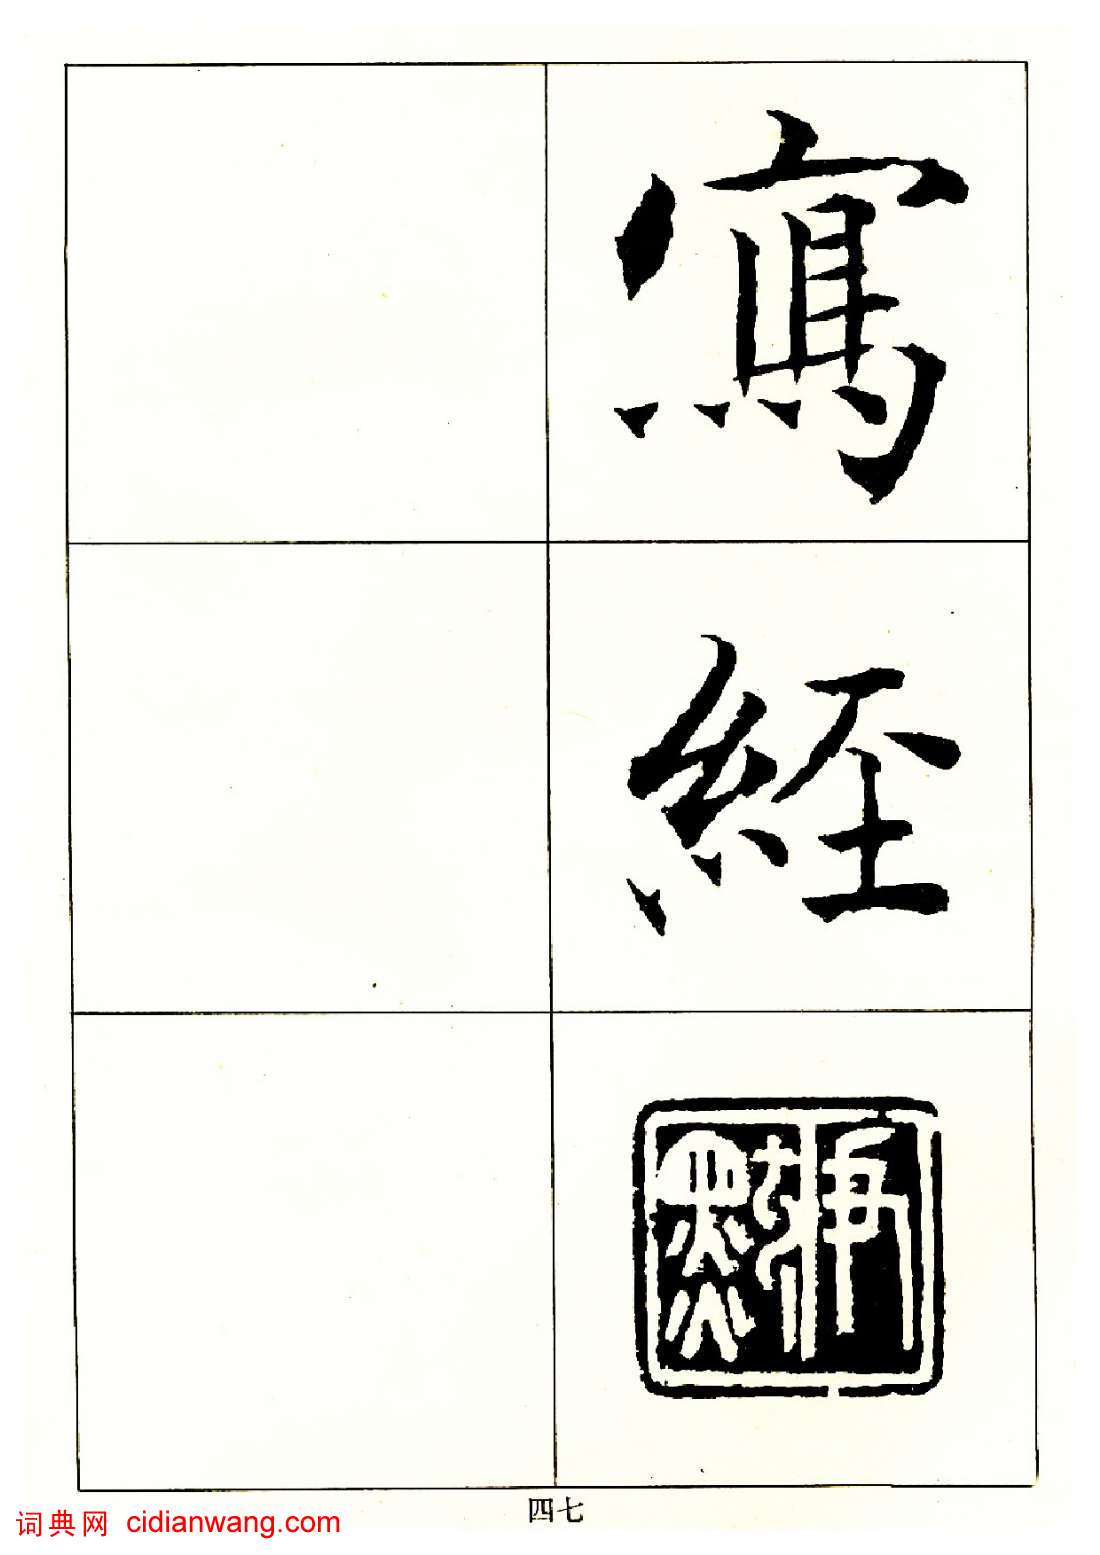 寫
經
四七
词典网 cidianwang.com